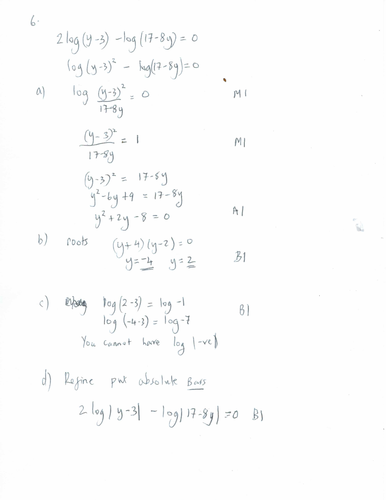 6.
2log(y-3) - log(17-8y) = 0
log(y-3)² - log(17-8y) = 0
a) log (y-3)²/17-8y = 0 M1
(y-3)²/17-8y = 1 M1
(y-3)² = 17-8y
y²-6y+9 = 17-8y
y²+2y-8 = 0 A1
b) roots (y+4)(y-2)=0
y=-4 y=2 B1
c) log(2-3) = log-1 B1
log(-4-3) = log-7
You cannot have log |-ve|
d) Refine put absolute Bars
2log|y-3| - log|17-8y| = 0 B1